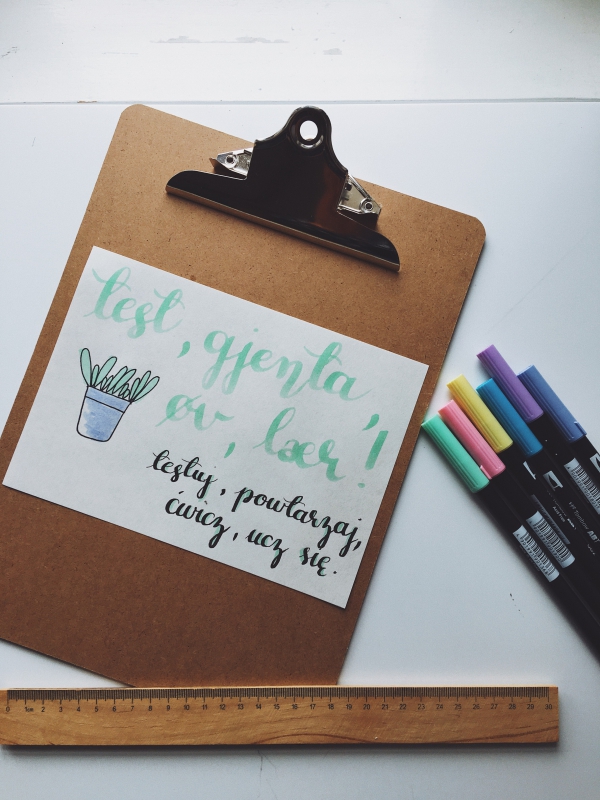 test, gjenta,
øv, lær!
testuj, powtarzaj,
ćwicz, ucz się.
0 1cm 2 3 4 5 6 7 8 9 10 11 12 13 14 15 16 17 18 19 20 21 22 23 24 25 26 27 28 29 30